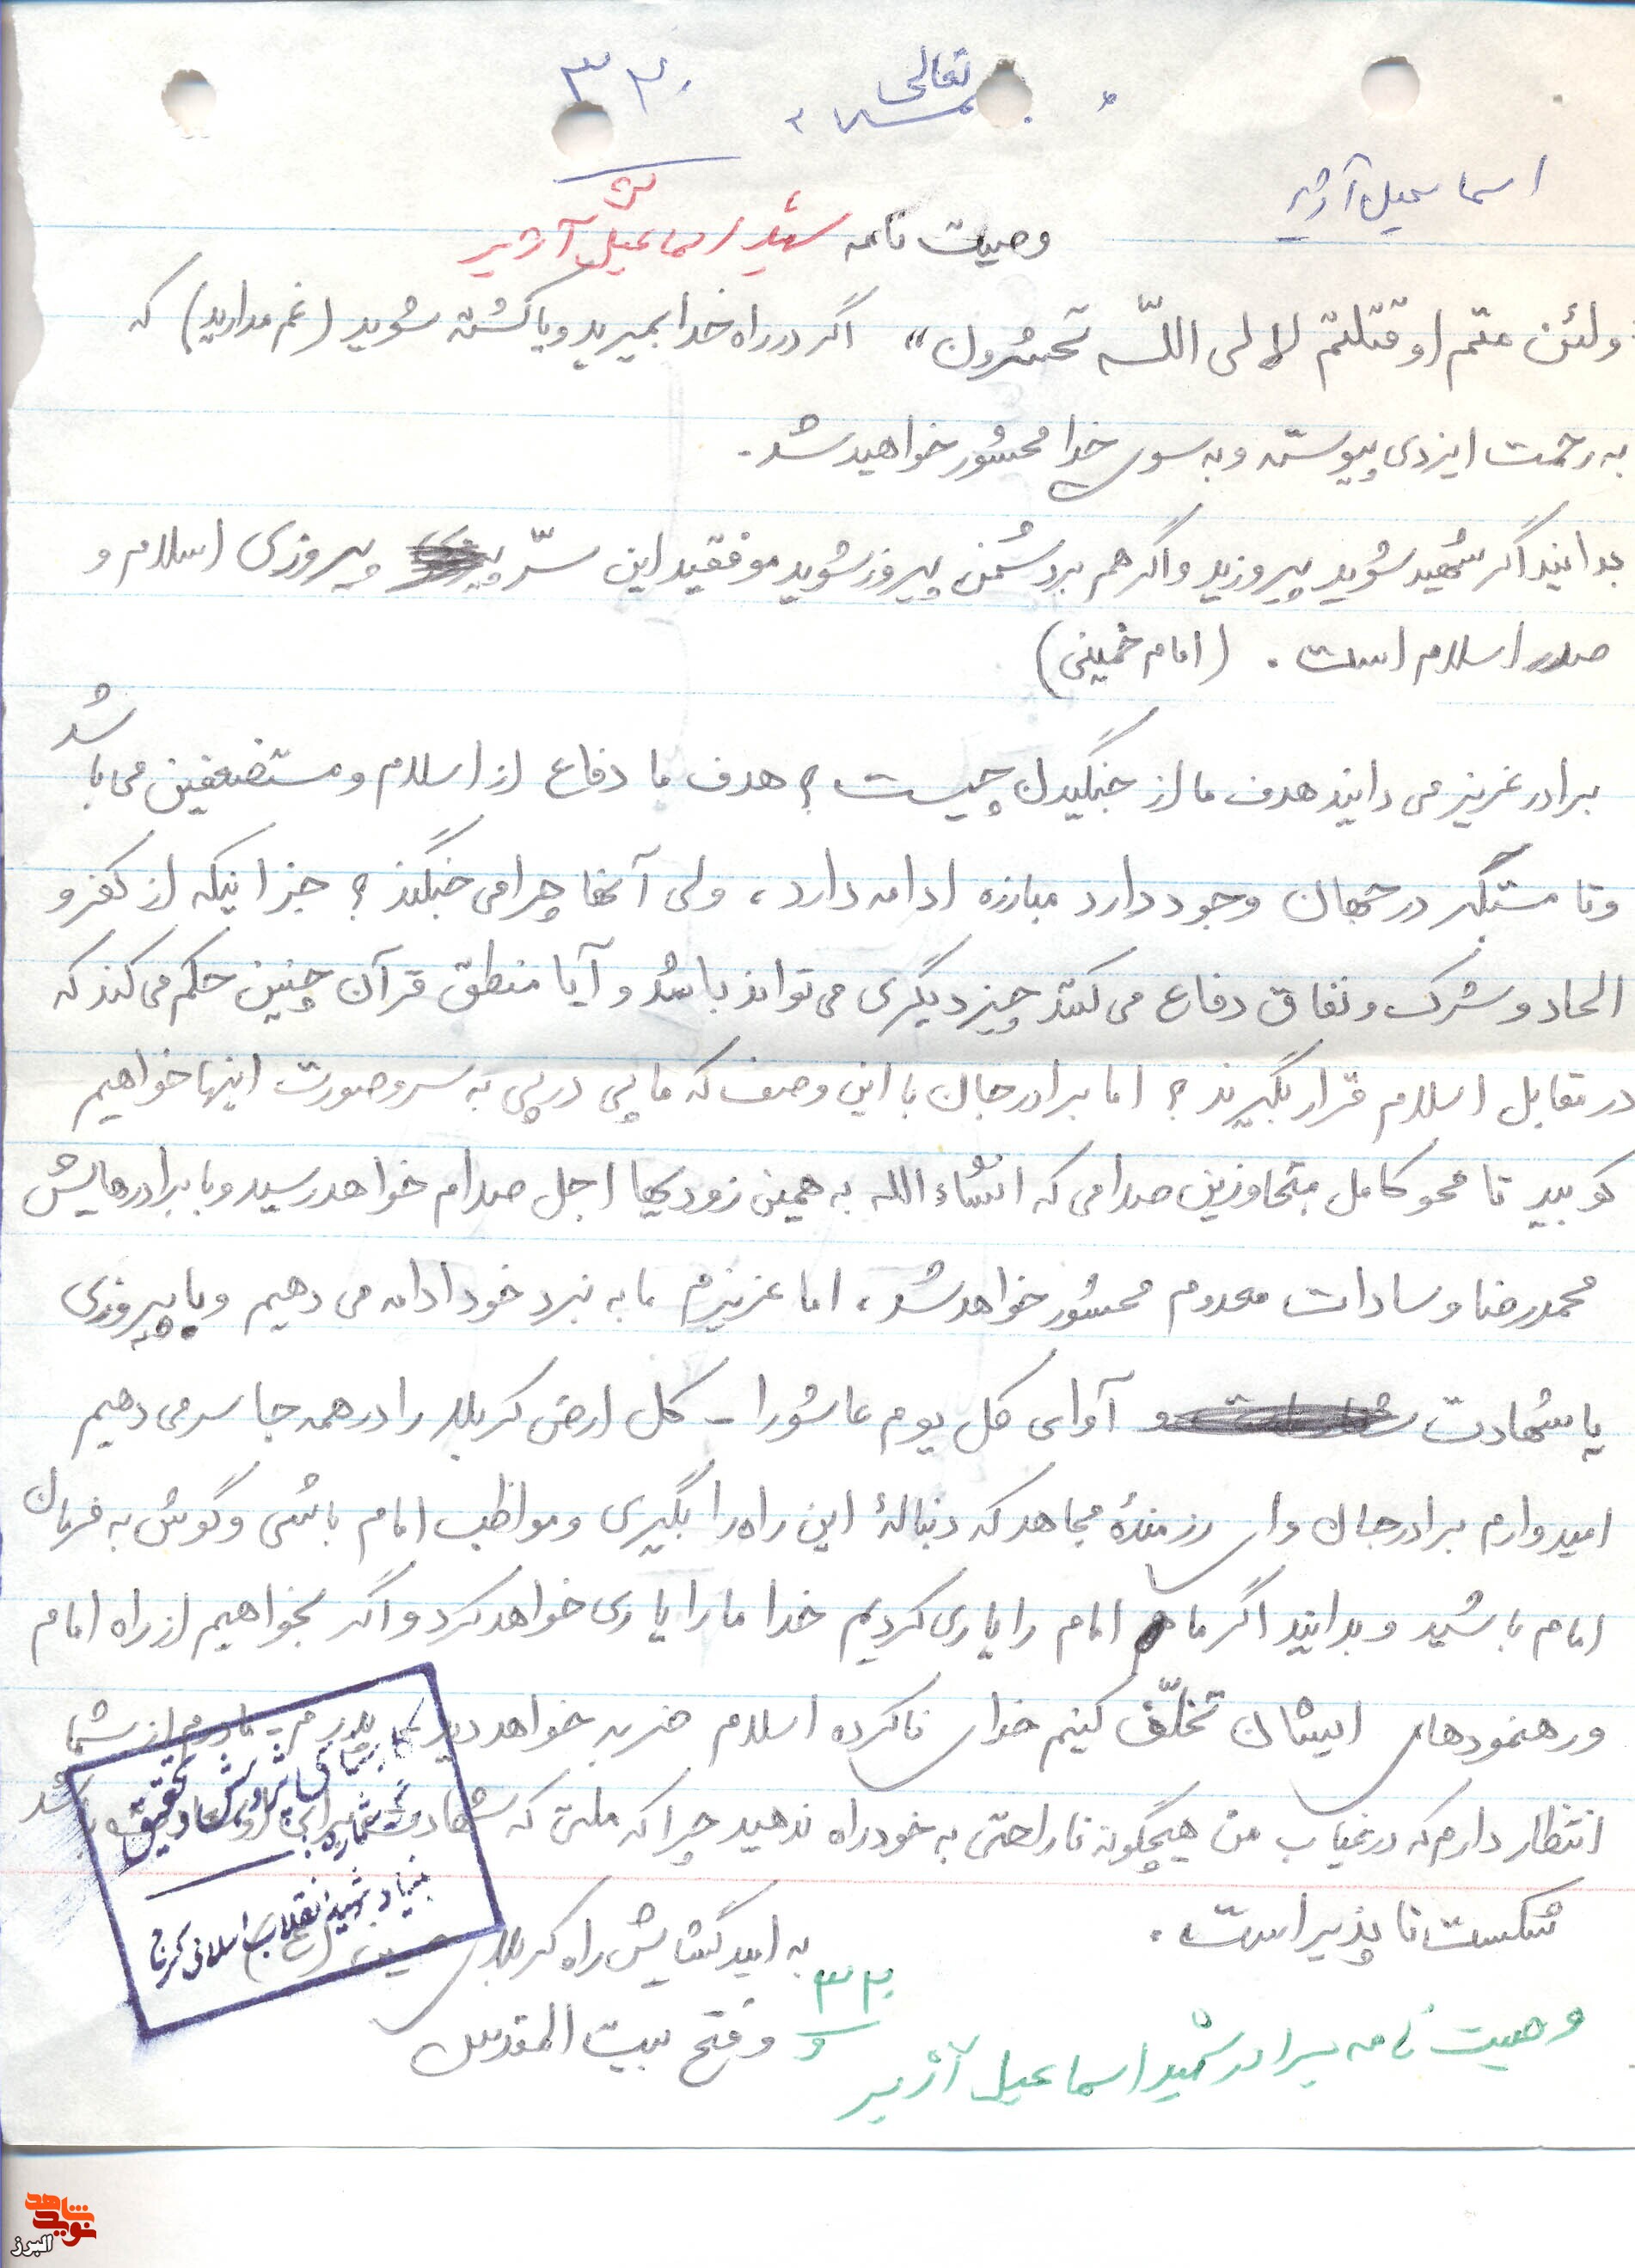 بسمه تعالی
۳۳۰
اسماعیل آژیر
وصیت نامه شهید اسماعیل آژیر
ولئن متم او قتلتم لا لی اللّه تحشرون» اگر در راه خدا بمیرید و یا کشته شوید (غم مدارید) که
به رحمت ایزدی پیوسته و به سوی خدا محشور خواهید شد.
بدانید اگر شهید شوید پیروزید و اگر هم بر دشمن پیروز شوید موفقید این سرّ پیروزی اسلام و
صدر اسلام است. (امام خمینی)
برادر عزیز می دانید هدف ما از جنگیدن چیست؟ هدف ما دفاع از اسلام و مستضعفین می باشد
و تا مستکبر در جهان وجود دارد مبارزه ادامه دارد، ولی آنها چرا می جنگند؟ جز اینکه از کفر و
الحاد و شرک و نفاق دفاع می کنند چیز دیگری می تواند باشد و آیا منطق قرآن چنین حکم می کند که
در مقابل اسلام قرار بگیرند؟ اما برادر جان با این وصف که ما پی در پی به سر و صورت اینها خواهیم
کوبید تا محو کامل متجاوزین صدامی که انشاء الله به همین زودیها اجل صدام خواهد رسید و با برادرهایش
محمدرضا و سادات معدوم محشور خواهد شد، اما عزیزم ما به نبرد خود ادامه می دهیم و یا پیروزی
یا شهادت و آوای کل یوم عاشورا - کل ارض کربلا را در همه جا سر می دهیم
امیدوارم برادر جان و ای رزمندهٔ مجاهد که دنبالهٔ این راه را بگیری و مواظب امام باشی و گوش به فرمان
امام باشید و بدانید اگر ما امام را یاری کردیم خدا ما را یاری خواهد کرد و اگر بخواهیم از راه امام
و رهنمودهای ایشان تخلّف کنیم خدای ناکرده اسلام ضربه خواهد دید پدرم - مادرم از شما
انتظار دارم که در غیاب من هیچگونه ناراحتی به خود راه ندهید چرا که ملتی که شهادت برای او سعادت باشد
شکست نا پذیر است.
به امید گشایش راه کربلای حسین (ع)
و فتح بیت المقدس
۳۳۰
و
وصیت نامه برادر شهید اسماعیل آژیر
پژوهش تحقیق
شماره
بنیاد شهید انقلاب اسلامی کرج
شاهد
نوید
البرز